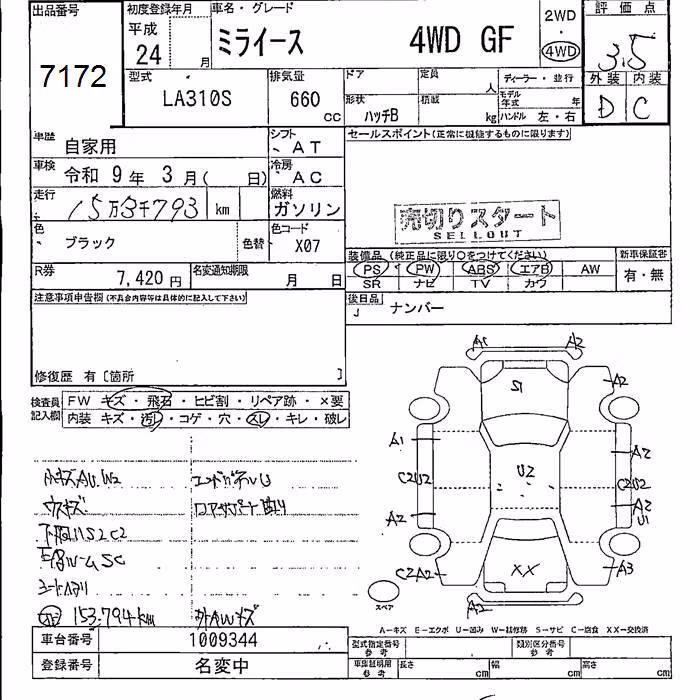 出品番号
7172
初度登録年月
平成
24 月
車名・グレード
ミライース 4WD GF
2WD
・
4WD
評価点
3.5
型式
LA310S
排気量
660
cc
ドア
定員
人
ディーラー・並行
形状
ハッチB
積載
kg
モデル年式 年
ハンドル 左・右
外装 内装
D C
車歴
自家用
シフト
AT
車検
令和 9 年 3 月( 日)
冷房
AC
走行
15万3千793 km
燃料
ガソリン
色
ブラック
色替
色コード
X07
R券
7,420 円
名変通知期限
月 日
セールスポイント(正常に機能するものに限ります)
売切りスタート
SELLOUT
装備品(純正品に限り○をつけてください)
PS PW ABS エアB AW
SR ナビ TV カワ
新車保証書
有・無
後日品
ナンバー
注意事項申告欄(不具合内容等は具体的に記入して下さい)
修復歴 有〔箇所 〕
検査員記入欄
FW キズ・飛石・ヒビ割・リペア跡・×要
内装 キズ・汚レ・コゲ・穴・スレ・キレ・破レ
小キズAU.W2
エンドパネルU
ウスキズ
下廻りS2C2
153.794km
外AWキズ
A1 A2
S1
A2
A1
A2
C2U2
U2
C2U2
A2
A2
U1
C2A2
XX
A3
A2
スペア
A-キズ E-エクボ U-凹み W-補修跡 S-サビ C-腐食 XX-交換済
車台番号
1009344
登録番号
名変中
型式指定番号
参考
類別区分番号
参考
車庫証明用
参考
長さ cm
幅 cm
高さ cm